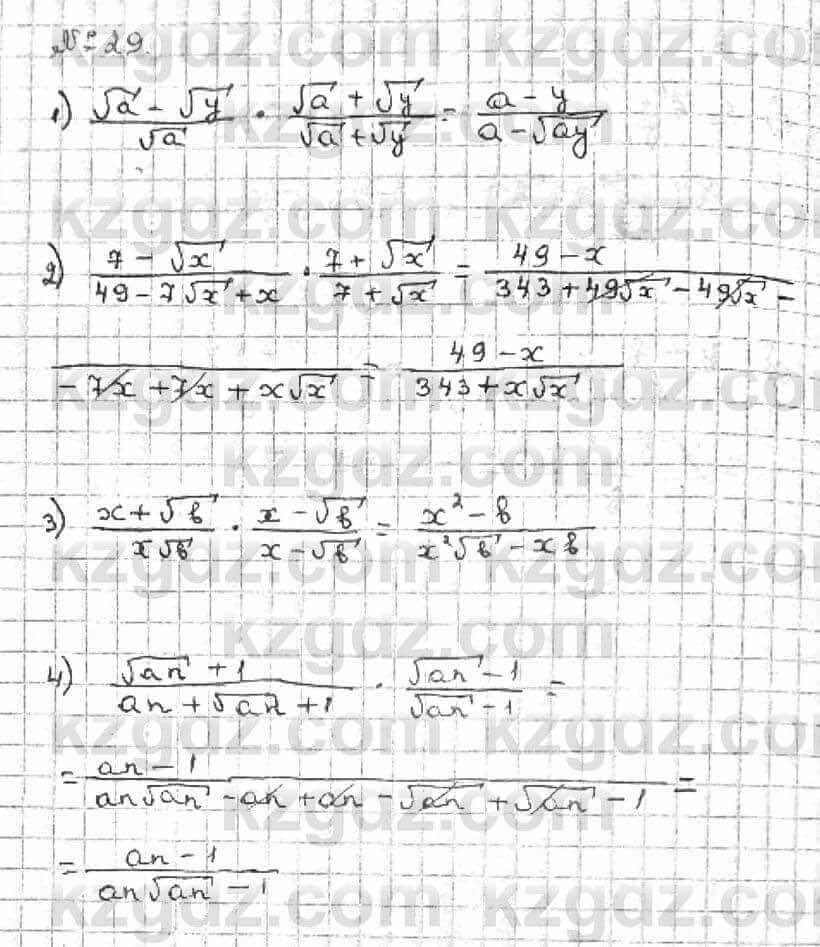 № 29.
1) (√a - √y)/√a · (√a + √y)/(√a + √y) = (a - y)/(a - √ay)
2) (7 - √x)/(49 - 7√x + x) · (7 + √x)/(7 + √x) = (49 - x)/(343 + 49√x - 49√x -
- 7x + 7x + x√x) = (49 - x)/(343 + x√x)
3) (x + √b)/(x√b) · (x - √b)/(x - √b) = (x² - b)/(x²√b - xb)
4) (√an + 1)/(an + √an + 1) · (√an - 1)/(√an - 1) =
= (an - 1)/(an√an - an + an - √an + √an - 1) =
= (an - 1)/(an√an - 1)
kzgdz.com